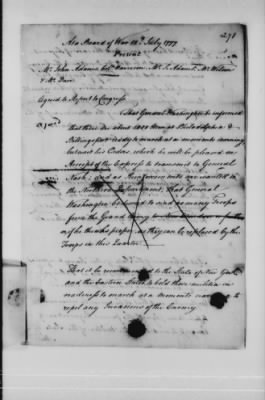 271
At a Board of War 18th July 1777
Present
Mr. John Adams, Mr. Harrison, Mr. S. Adams, Mr. Wilson
& Mr. Duer
Agreed to Report to Congress
That General Washington be informed
That there are about 1200 Men at Philadelphia &
Billingsport ready to march at a moments warning
but wait his Orders, which he will be pleased on
Receipt of the Express to transmit to General
Nash; and as Reinforcements are wanted in
the Northern Department, That General
Washington be to send as many Troops
from the Grand Army
as he thinks proper, as they can be replaced by the
Troops in this Quarter.
That it be recommended to the State of New York
and the Eastern States to hold their militia in
readiness to march at a moments warning to
repel any Invasions of the Enemy